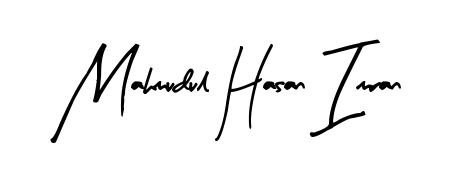 Mahmudul Hasan Iman